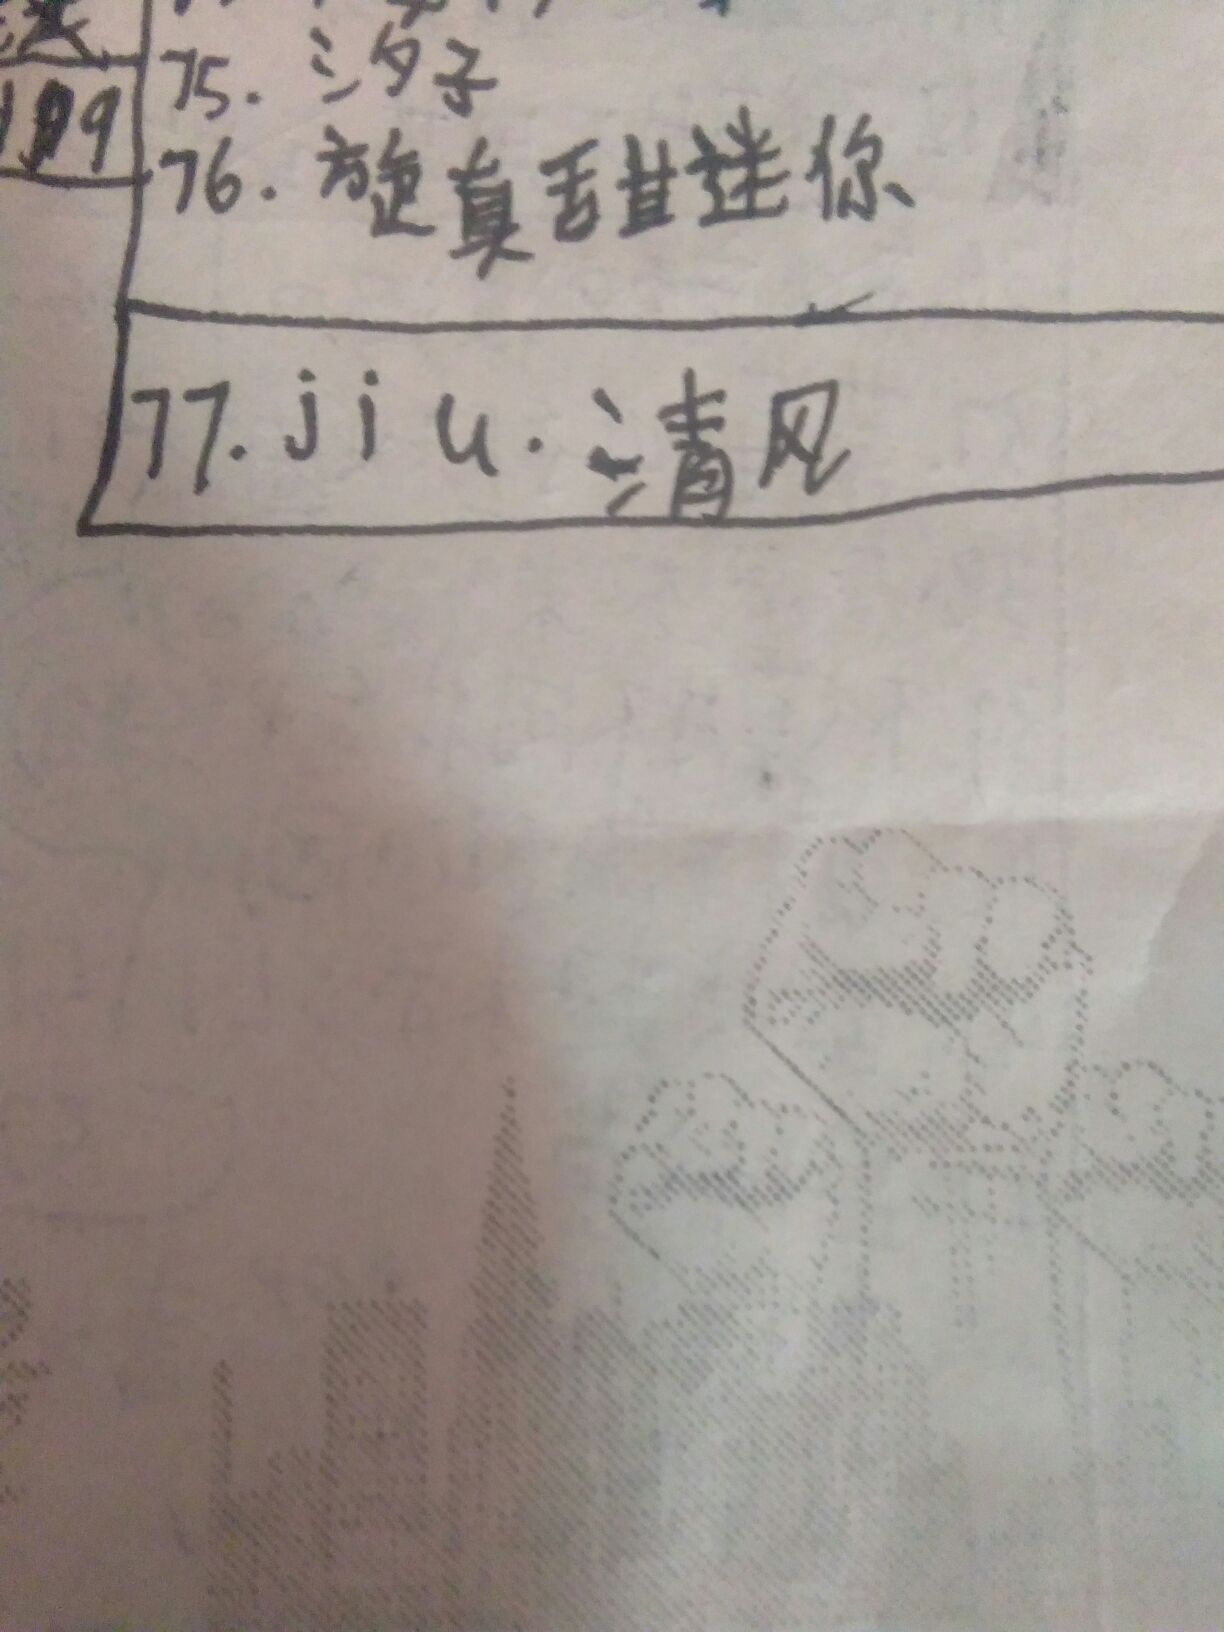 199
75. 汐子
76. 旋真甜迷你
77. jiu. 清风